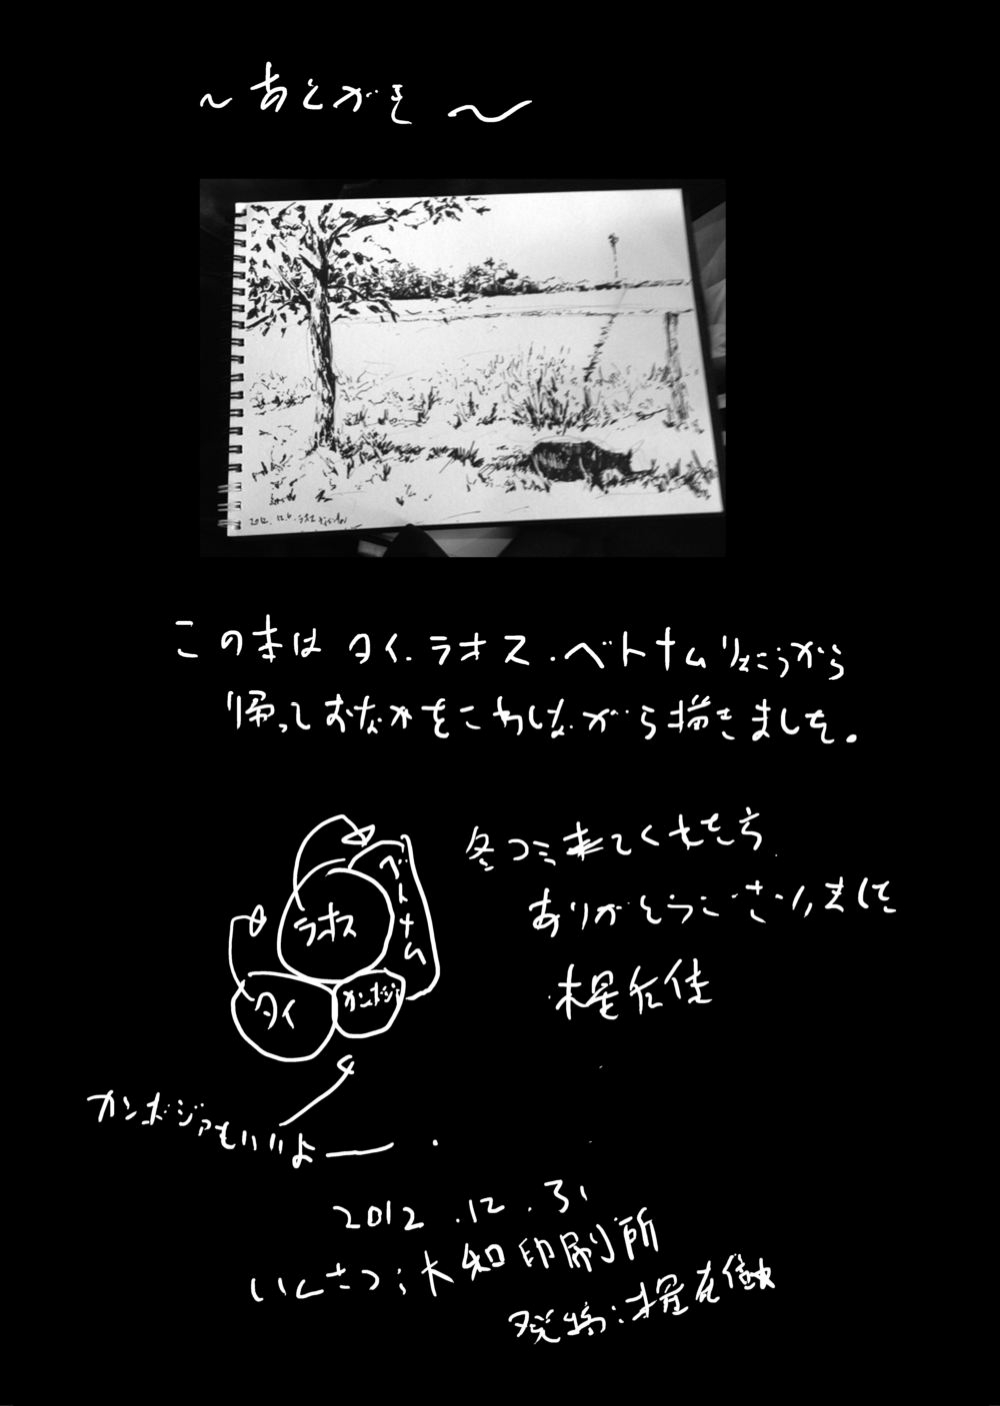 ～あとがき～
2012.12.6.ラオス
この本はタイ.ラオス.ベトナムりょこうから
帰っておなかをこわしながら描きました。
冬コミ来てくれた方
ありがとうございました
木星在住
ベトナム
ラオス
タイ
カンボジア
カンボジアもいいよー
2012.12.31
いんさつ:大知印刷所
発行:木星在住